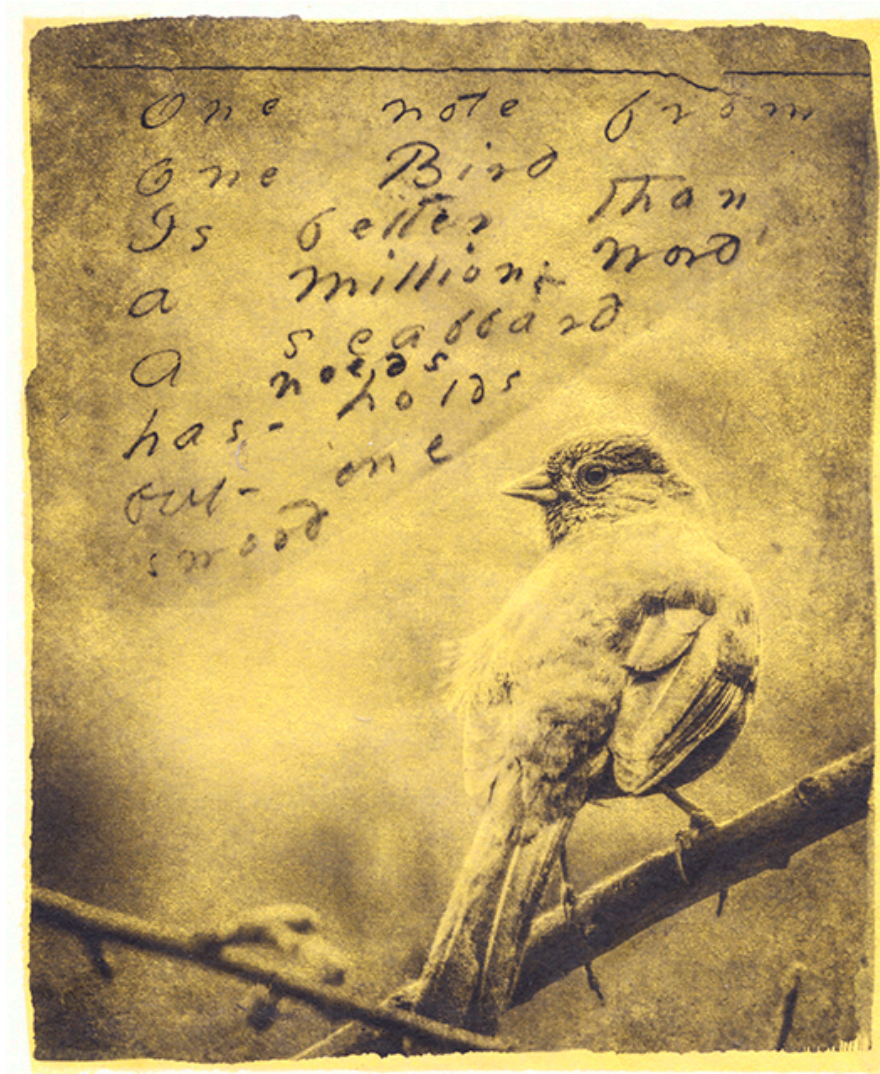 One note from
One Bird
Is better than
a million word
a scabbard
needs
has - holds
but - one
sword